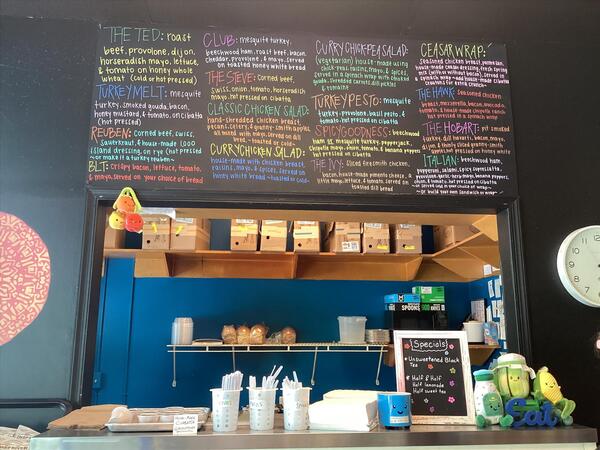 THE TED: roast
beef, provolone, dijon,
horseradish mayo, lettuce,
& tomato on honey whole
wheat (cold or hot pressed)
TURKEY MELT: mesquite
turkey, smoked gouda, bacon,
honey mustard, & tomato, on ciabatta
(hot pressed)
REUBEN: corned beef, swiss,
sauerkraut, & house-made 1000
island dressing, on rye (hot pressed)
~or make it a turkey reuben~
BLT: crispy bacon, lettuce, tomato,
& mayo, served on your choice of bread
CLUB: mesquite turkey,
beechwood ham, roast beef, bacon,
cheddar, provolone, & mayo, served
on toasted honey white bread
THE STEVE: corned beef,
swiss, onion, tomato, horseradish
mayo, hot pressed on ciabatta
CLASSIC CHICKEN SALAD:
hand-shredded chicken breast,
pecans, celery, & granny-smith apples
all mixed with mayo, served on rye
bread, ~toasted or cold~
CURRY CHICKEN SALAD:
house-made with chicken breast,
raisins, mayo, & spices, served on
honey white bread ~toasted or cold~
CURRY CHICKPEA SALAD:
(vegetarian) house-made using
chick-peas, raisins, mayo, & spices,
served in a spinach wrap with smoked
gouda, shredded carrots, dill pickles
& tomatoes
TURKEY PESTO: mesquite
turkey, provolone, basil pesto, &
tomato, hot pressed on ciabatta
SPICY GOODNESS: beechwood
ham or mesquite turkey, pepperjack,
chipotle mayo, onion, tomato, & banana peppers,
hot pressed on ciabatta
THE IVY: sliced granny smith
bacon, house-made pimento cheese, &
lettuce, & tomato, served on
toasted dill bread
CEASAR WRAP:
seasoned chicken breast, parmesan,
house-made caesar dressing, fresh spring
mix (with or without bacon), served in
a spinach wrap
THE HAWK: seasoned chicken
breast, mozzarella, bacon, avocado,
tomato, & house-made chipotle mayo,
hot pressed on ciabatta
THE HOBART: pit smoked
turkey, dill havarti, bacon, mayo,
dijon, & thinly sliced granny-smith
apples, hot pressed on ciabatta
ITALIAN: beechwood ham,
pepperoni, salami, spicy capicola,
provolone, garlic-herb mayo, banana peppers,
onion, hot pressed on ciabatta
~or served on your choice of wrap~
~or build your own sandwich or wrap~
SPOONS
{Specials}
Unsweetened Black
Tea
Half & Half
Half lemonade
Half sweet tea
Eat